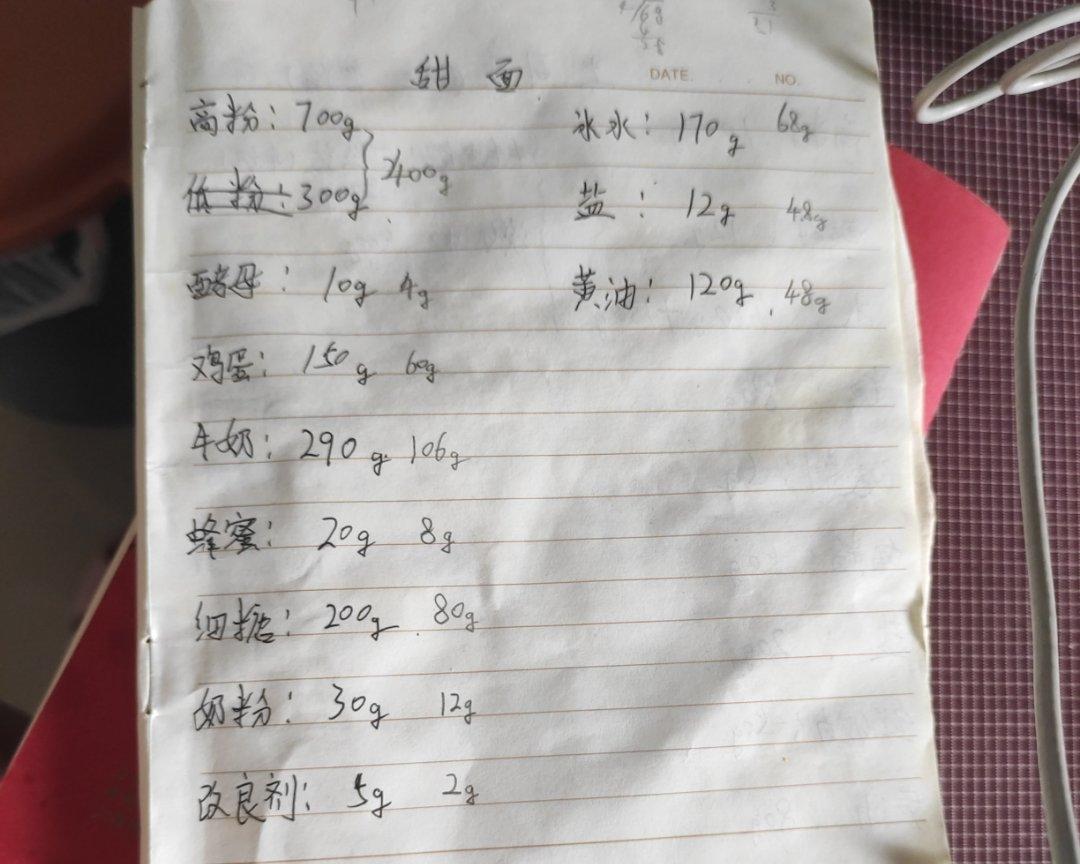 甜面
DATE. NO.
高粉：700g 冰水：170g 68g
低粉：300g } 400g 盐：12g 48g
酵母：10g 4g 黄油：120g 48g
鸡蛋：150g 60g
牛奶：290g 106g
蜂蜜：20g 8g
细糖：200g 80g
奶粉：30g 12g
改良剂：5g 2g